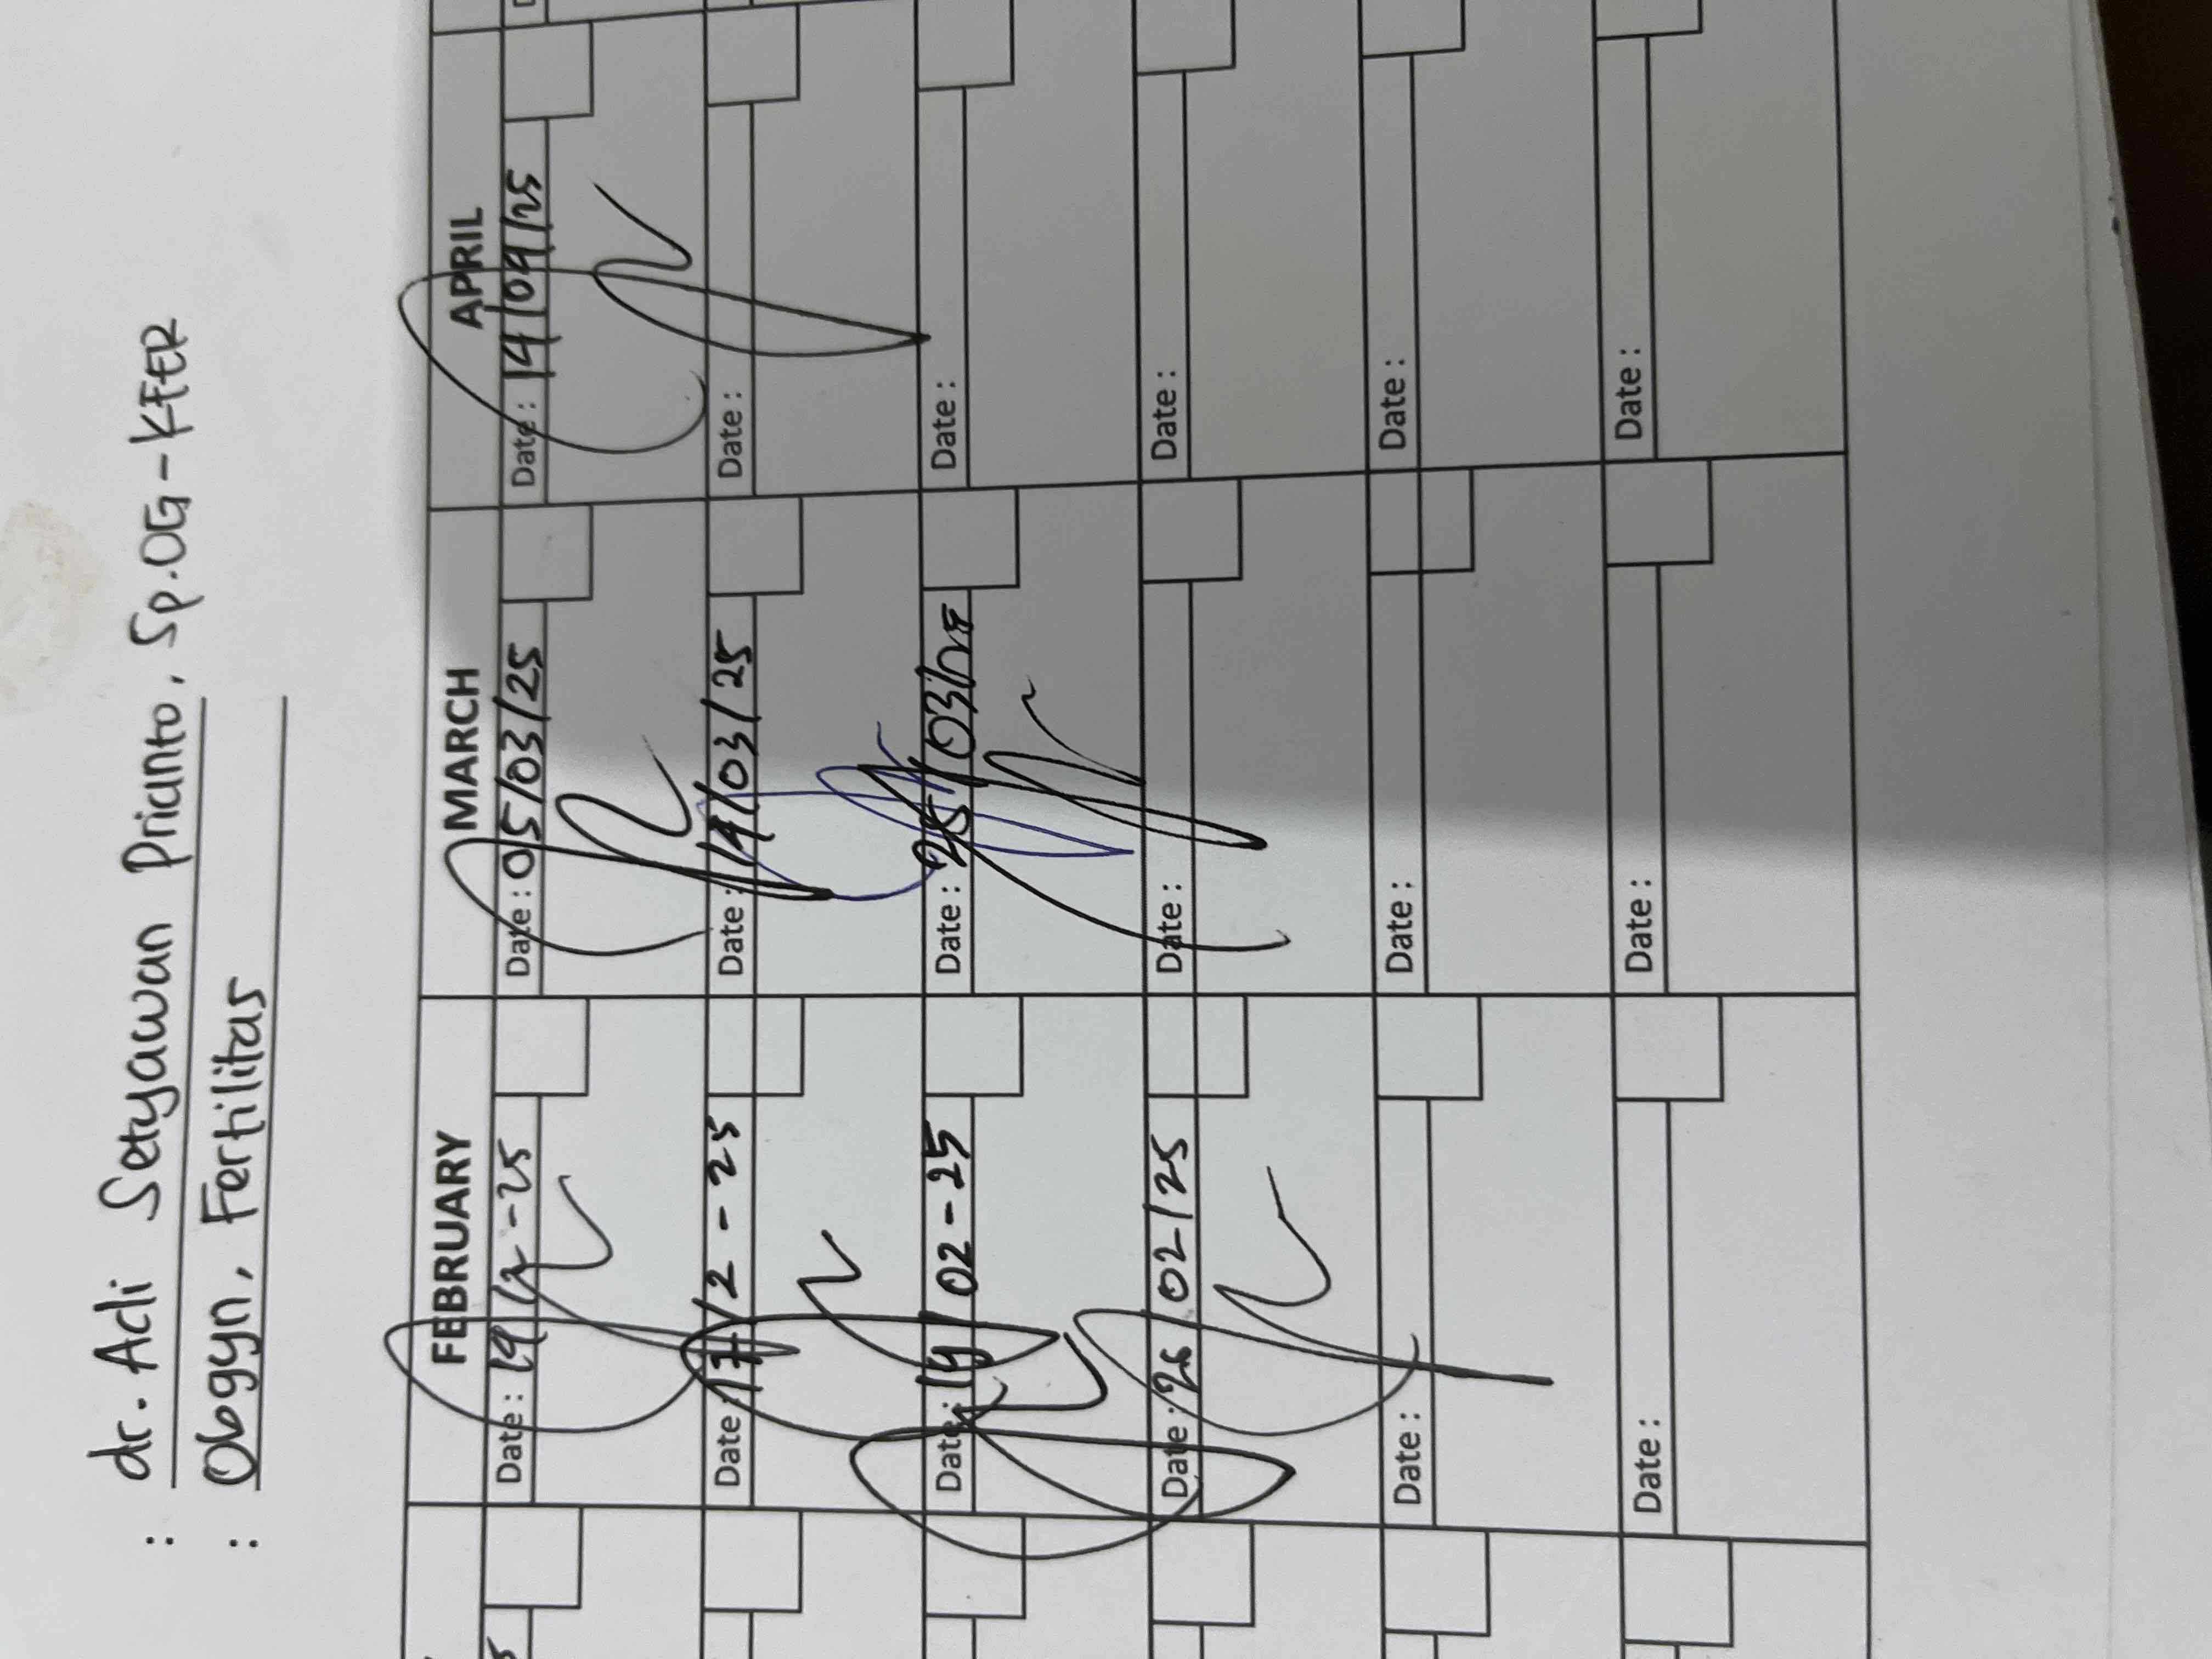 : dr. Adi Setyawan Prianto, Sp.OG-KFER
: Obgyn, Fertilitas
FEBRUARY MARCH APRIL
Date: 14/2-25 Date: 05/03/25 Date: 14/04/25
Date: 17/2-25 Date: 14/03/25 Date:
Date: 19/02-25 Date: 25/03/ Date:
Date: 26/02/25 Date: Date:
Date: Date: Date:
Date: Date: Date: